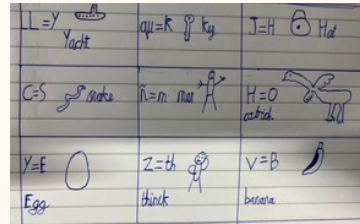 LL=Y
Yacht
qu=K ky
J=H Hat
C=S snake
ñ=m man
H=O
ostrich
Y=E
Egg
Z=th
thinck
V=B
banana